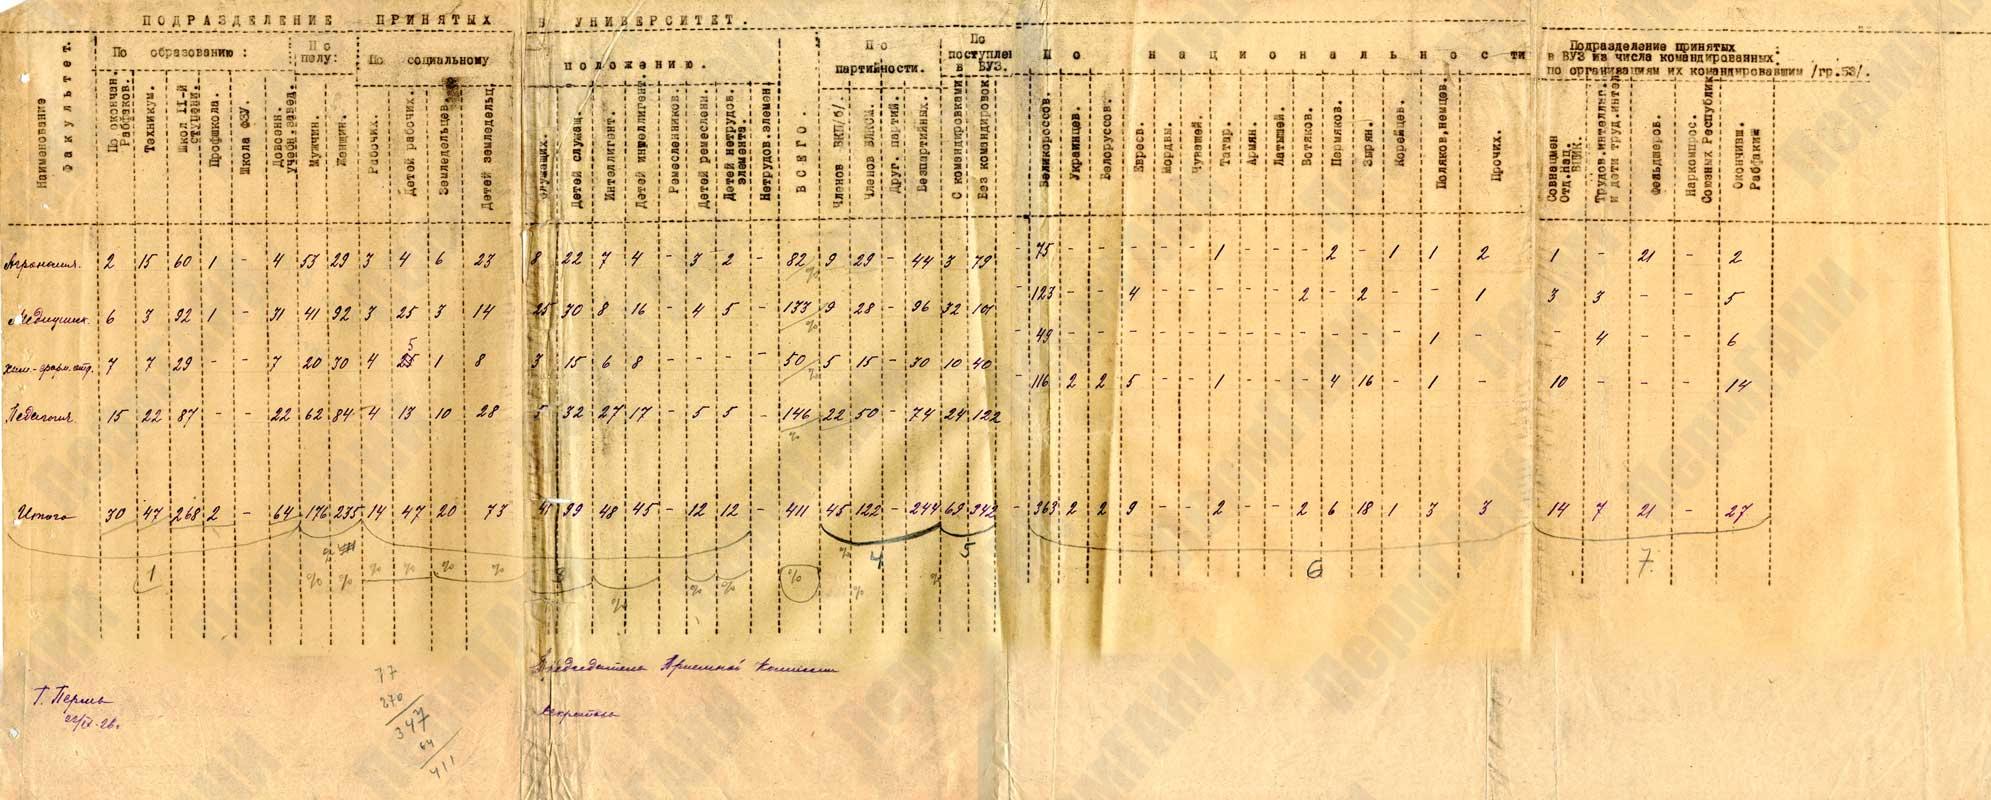 ПОДРАЗДЕЛЕНИЕ ПРИНЯТЫХ В УНИВЕРСИТЕТ.
Наименование Факультет.
По образованию:
По полу:
По социальному положению.
По партийности.
По поступлен в ВУЗ.
По национальности
Подразделение принятых в ВУЗ из числа командированных. по организациям их командировавшим /гр.53/.
По окончан. Рабфаков.
Техникум.
Школ II-й ступени.
Профшкола.
Школа ФЗУ.
Довоенн. учебн.завед.
Мужчин.
Женщин.
Рабочих.
Детей рабочих.
Земледельцев.
Детей земледельц.
Служащих.
Детей служащ.
Интеллигент.
Детей интеллигент.
Ремесленников.
Детей ремеслен.
Детей нетрудов. элемента.
Нетрудов.элемен.
ВСЕГО.
Членов ВКП/б/.
Членов ВЛКСМ.
Друг. партий.
Безпартийных.
С командировками.
Без командировок.
Великороссов.
Украинцев.
Белоруссов.
Евреев.
Мордвы.
Чувашей.
Татар.
Армян.
Латышей.
Вотяков.
Пермяков.
Зырян.
Корейцев.
Поляков, немцев
Прочих.
Совнацмен Отд.Нац. ВЦИК.
Трудов.интеллиг. и дети труд.интел
Фельдшеров.
Наркомпрос. Союзных Республик
Окончивш. Рабфаки
Агрономия. 2 15 60 1 - 4 53 29 3 4 6 23 8 22 7 4 - 3 2 - 82 9 29 - 44 3 79 - 75 - - - - - 1 - - - 2 - 1 1 2 1 - 21 - 2
Медицинск. 6 3 92 1 - 31 41 92 3 25 3 14 25 30 8 16 - 4 5 - 133 9 28 - 96 32 101 - 123 - - 4 - - - - - 2 - 2 - - 1 3 3 - - 5
Хим.-фарм.отд. 7 7 29 - - 7 20 30 4 5 1 8 3 15 6 8 - - - - 50 5 15 - 30 10 40 - 49 - - - - - - - - - - - - 1 - - 4 - - 6
Педагогия 15 22 87 - - 22 62 84 4 13 10 28 5 32 27 17 - 5 5 - 146 22 50 - 74 24 122 - 116 2 2 5 - - 1 - - - 4 16 - 1 - 10 - - - 14
Итого 30 47 268 2 - 64 176 235 14 47 20 73 41 99 48 45 - 12 12 - 411 45 122 - 244 69 342 - 363 2 2 9 - - 2 - - 2 6 18 1 3 3 14 7 21 - 27
1 4 5 6 7
Председатель Приемной Комиссии
Секретарь
Г. Пермь
22/IX-26г.
77
270
347
64
411
ПермГАНИ